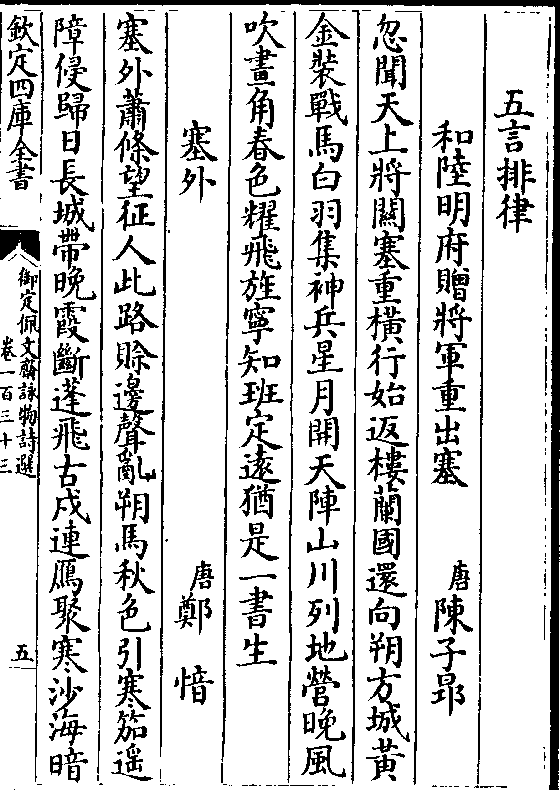 五言排律
和陸明府贈將軍重出塞　唐陳子昻
忽聞天上將關塞重橫行始返樓蘭國還向朔方城黃
金裝戰馬白羽集神兵星月開天陣山川列地營晚風
吹畫角春色耀飛旌寧知班定遠猶是一書生
塞外　唐鄭愔
塞外蕭條望征人此路賒邊聲亂朔馬秋色引寒笳遥
障侵歸日長城帶晚霞斷蓬飛古戍連鴈聚寒沙海暗
欽定四庫全書
御定佩文齋詠物詩選
卷一百三十三
五